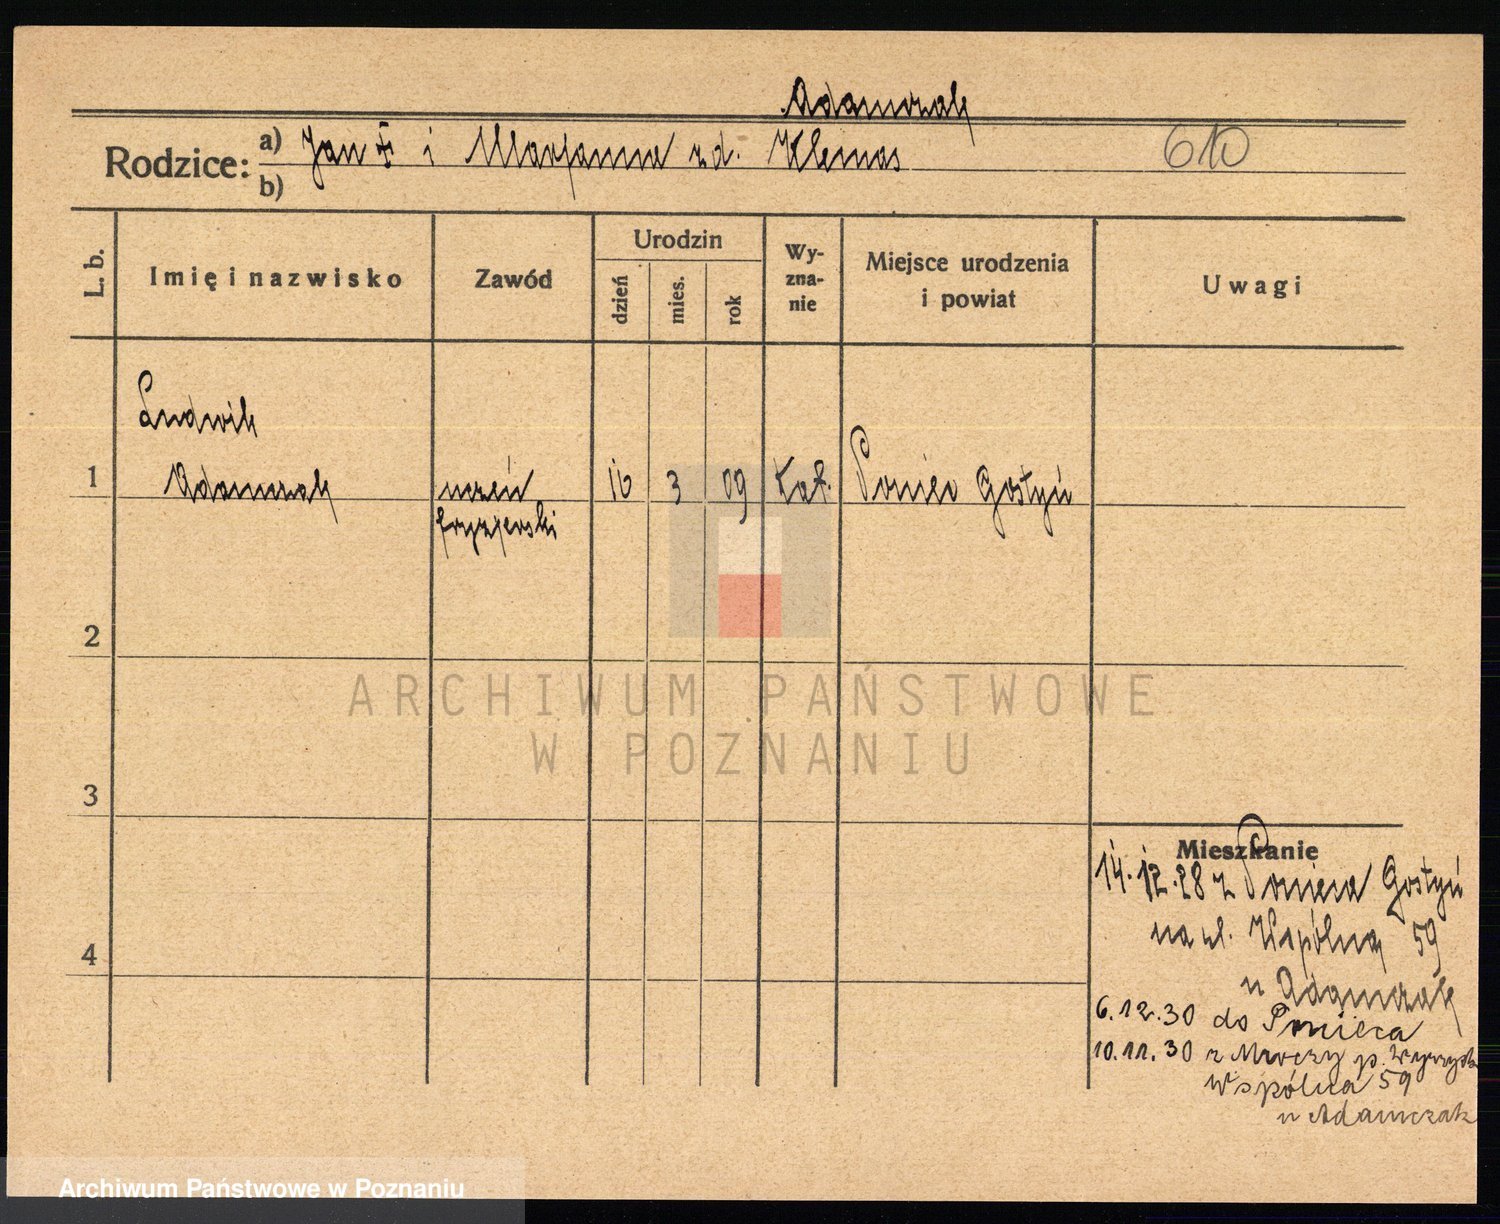 Adamczak
Rodzice: a) Jan † i Marjanna zd. Klemas
b)
610
L. b.
Imię i nazwisko
Zawód
Urodzin
dzień
mies.
rok
Wy-
zna-
nie
Miejsce urodzenia
i powiat
Uwagi
Ludwik
1 Adamczak uczeń 16 3 09 Kat. Poniec Gostyń
fryzjerski
2
3
4
ARCHIWUM PAŃSTWOWE
W POZNANIU
Mieszkanie
14.12.28 z Ponieca Gostyń
na ul. Wspólną 59
u Adamczak
6.12.30 do Ponieca
10.11.30 z Mroczy p. Wyrzysk
Wspólna 59
u Adamczak
Archiwum Państwowe w Poznaniu